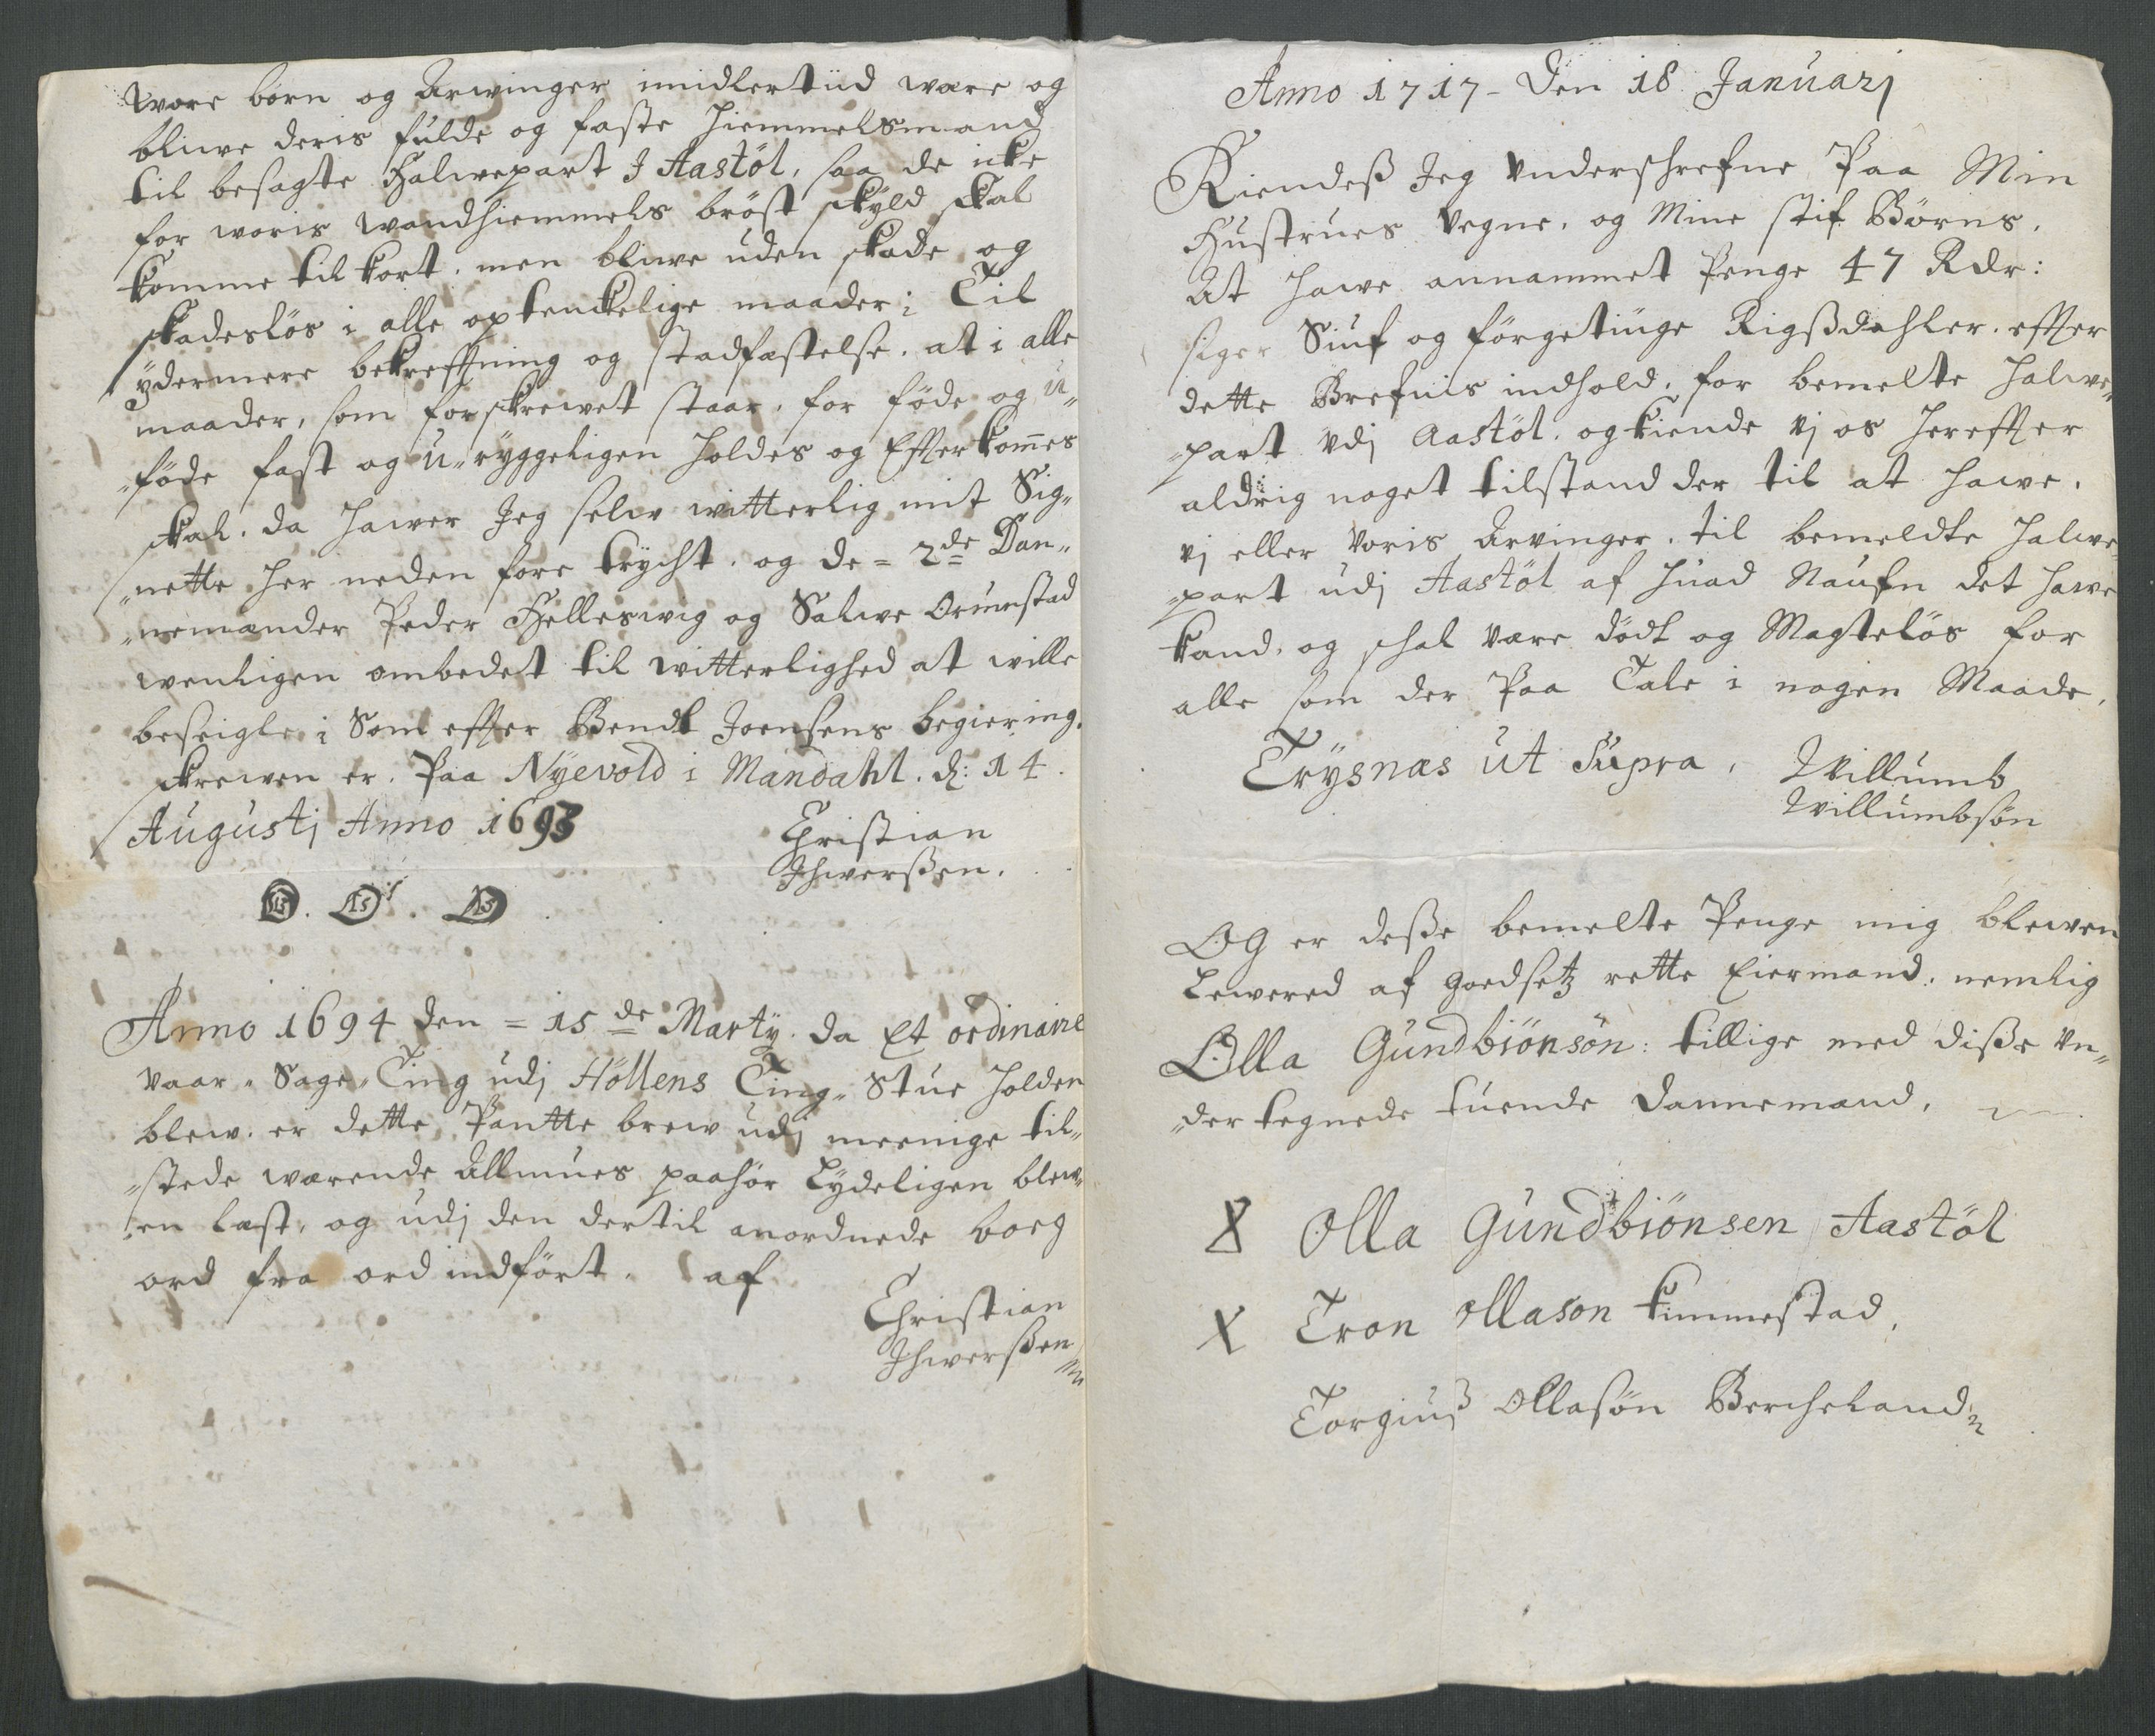 wore børn og Arwinger imidlertiid være og
bliwe deris fulde og faste Hiemmelsmand
til besagte Halwepart I Aastöl, saa de icke
for woris wandhiemmels bröst skÿld skal
komme til kort. men bliwe uden skade og
skadeslös i alle optenckelige maader; Til
ÿdermere bekreffning og stadfæstelse. at i alle
maader, som forskrewet staar, for föde og u„
„föde fast og U„rÿggeligen Holdes og Efterkom̅es
skal. da Hawer Jeg selw witterlig mit Sig„
„nette her neden fore trÿcht. og de = 2de Dan„
„nemænder Peder Helleswig og Salwe Orunstad
wenligen ombedet til witterlighed at wille
beseigle; Som efter Bendt Joensens begiering.
skrewen er. Paa Nÿevold i Mandahl. d: 14.
Augustj Anno 1693
Christian
Ihwerßen.
Anno 1694 den = 15de Martÿ. da Et ordinaire
Vaar„Sage„Ting udj Höllens Ting„Stue Holden
blew. er dette Pantte brew udj meenige til„
„stede wærende Allmues paahör Lÿdeligen blew„
„en læst, og udj den dertil anordnede boeg
ord fra ord indfört. af
Christian
Ihwerßen
Anno 1717 - Den 18 Januarj
Kiendeß Jeg Underschrefne Paa Min
Hustrues Vegne, og Mine stif Børns.
At Hawe annammet Penge 47 Rdr:
siger Siuf og förgetiuge Rigßdahler. efter
dette Brefuis indhold, for bemelte Halwe„
„part Vdj Aastöl. og kiende vj os Herefter
aldrig noget tilstand der til at Hawe,
vj eller Voris Arvinger. til bemeldte Halwe„
„part udj Aastöl af Huad Naufn det Hawe
kand. og schal være dödt og Magtelös for
alle som der Paa Tale i nogen Maade.
Trÿsnæs ut Supra, Willumb
Willumbsøn
Og er deße bemelte Penge mig blewen
Lewered af goedsetz rette Eiermand. nemlig
Olla Gundbiönsön: tillige med diße Un„
„der tegnede tuende Dannemænd,
X Olla Gundbiönsen Aastöl
X Tron Ollason Kimmestad,
Torgiuß Ollasön Bercheland